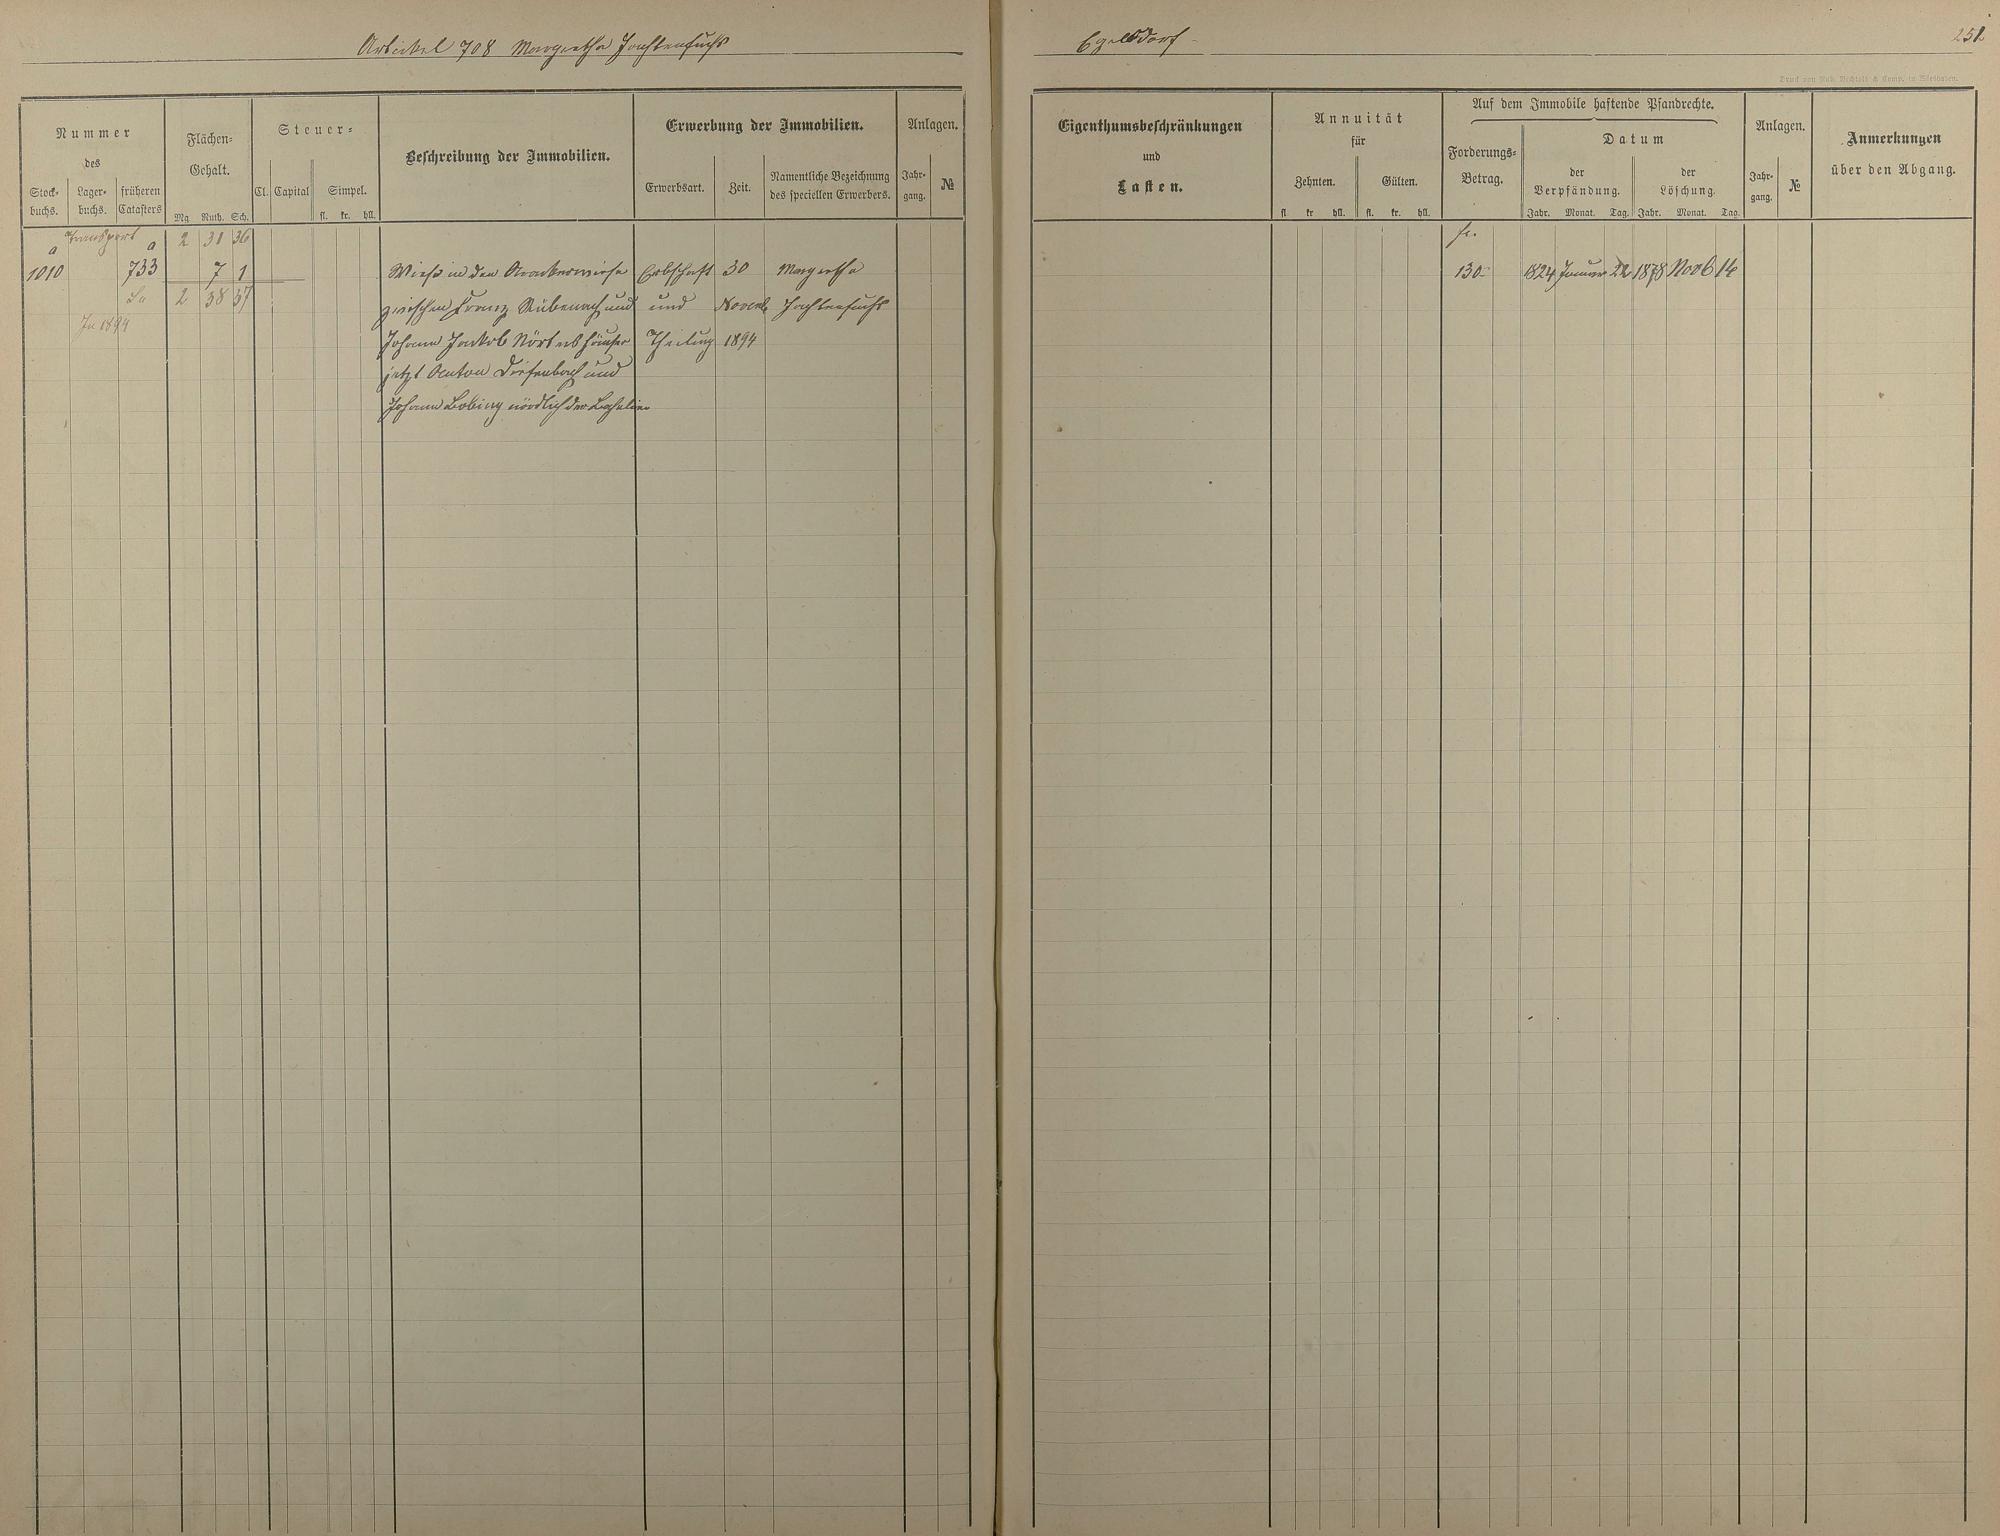 Artickel 708 Margretha Jachtenfuchs
Egelsdorf
251
Druck von Rud. Bechtold & Comp. in Wiesbaden.
Nummer
des
Stock-
buchs.
Lager-
buchs.
früheren
Catasters
Flächen-
Gehalt.
Mg Ruth. Sch.
Steuer-
Cl. Capital Simpel.
fl. kr. hll.
Beschreibung der Immobilien.
Erwerbung der Immobilien.
Erwerbsart. Zeit.
Namentliche Bezeichnung
des speciellen Erwerbers.
Anlagen.
Jahr-
gang.
№
Eigenthumsbeschränkungen
und
Lasten.
Annuität
für
Zehnten. Gülten.
fl. kr hll. fl. kr. hll.
Auf dem Immobile haftende Pfandrechte.
Forderungs-
Betrag.
Datum
der
Verpfändung.
der
Löschung.
Jahr. Monat. Tag. Jahr. Monat. Tag.
Anlagen.
Jahr-
gang.
№
Anmerkungen
über den Abgang.
Transport 2 31 36
a a
1010 733 7 1
Sa 2 38 37
In 1894
Wiese in den
zwischen Franz Rübenach und
Johann Jackob Nörtershäuser
jetzt Anton Diefenbach und
Johann nördlich der
Erbschaft
und
Theilung
30
Novemb.
1894
Margretha
Jachtenfuchs
fl.
130 1824 Januar 22 1878 Novb 14